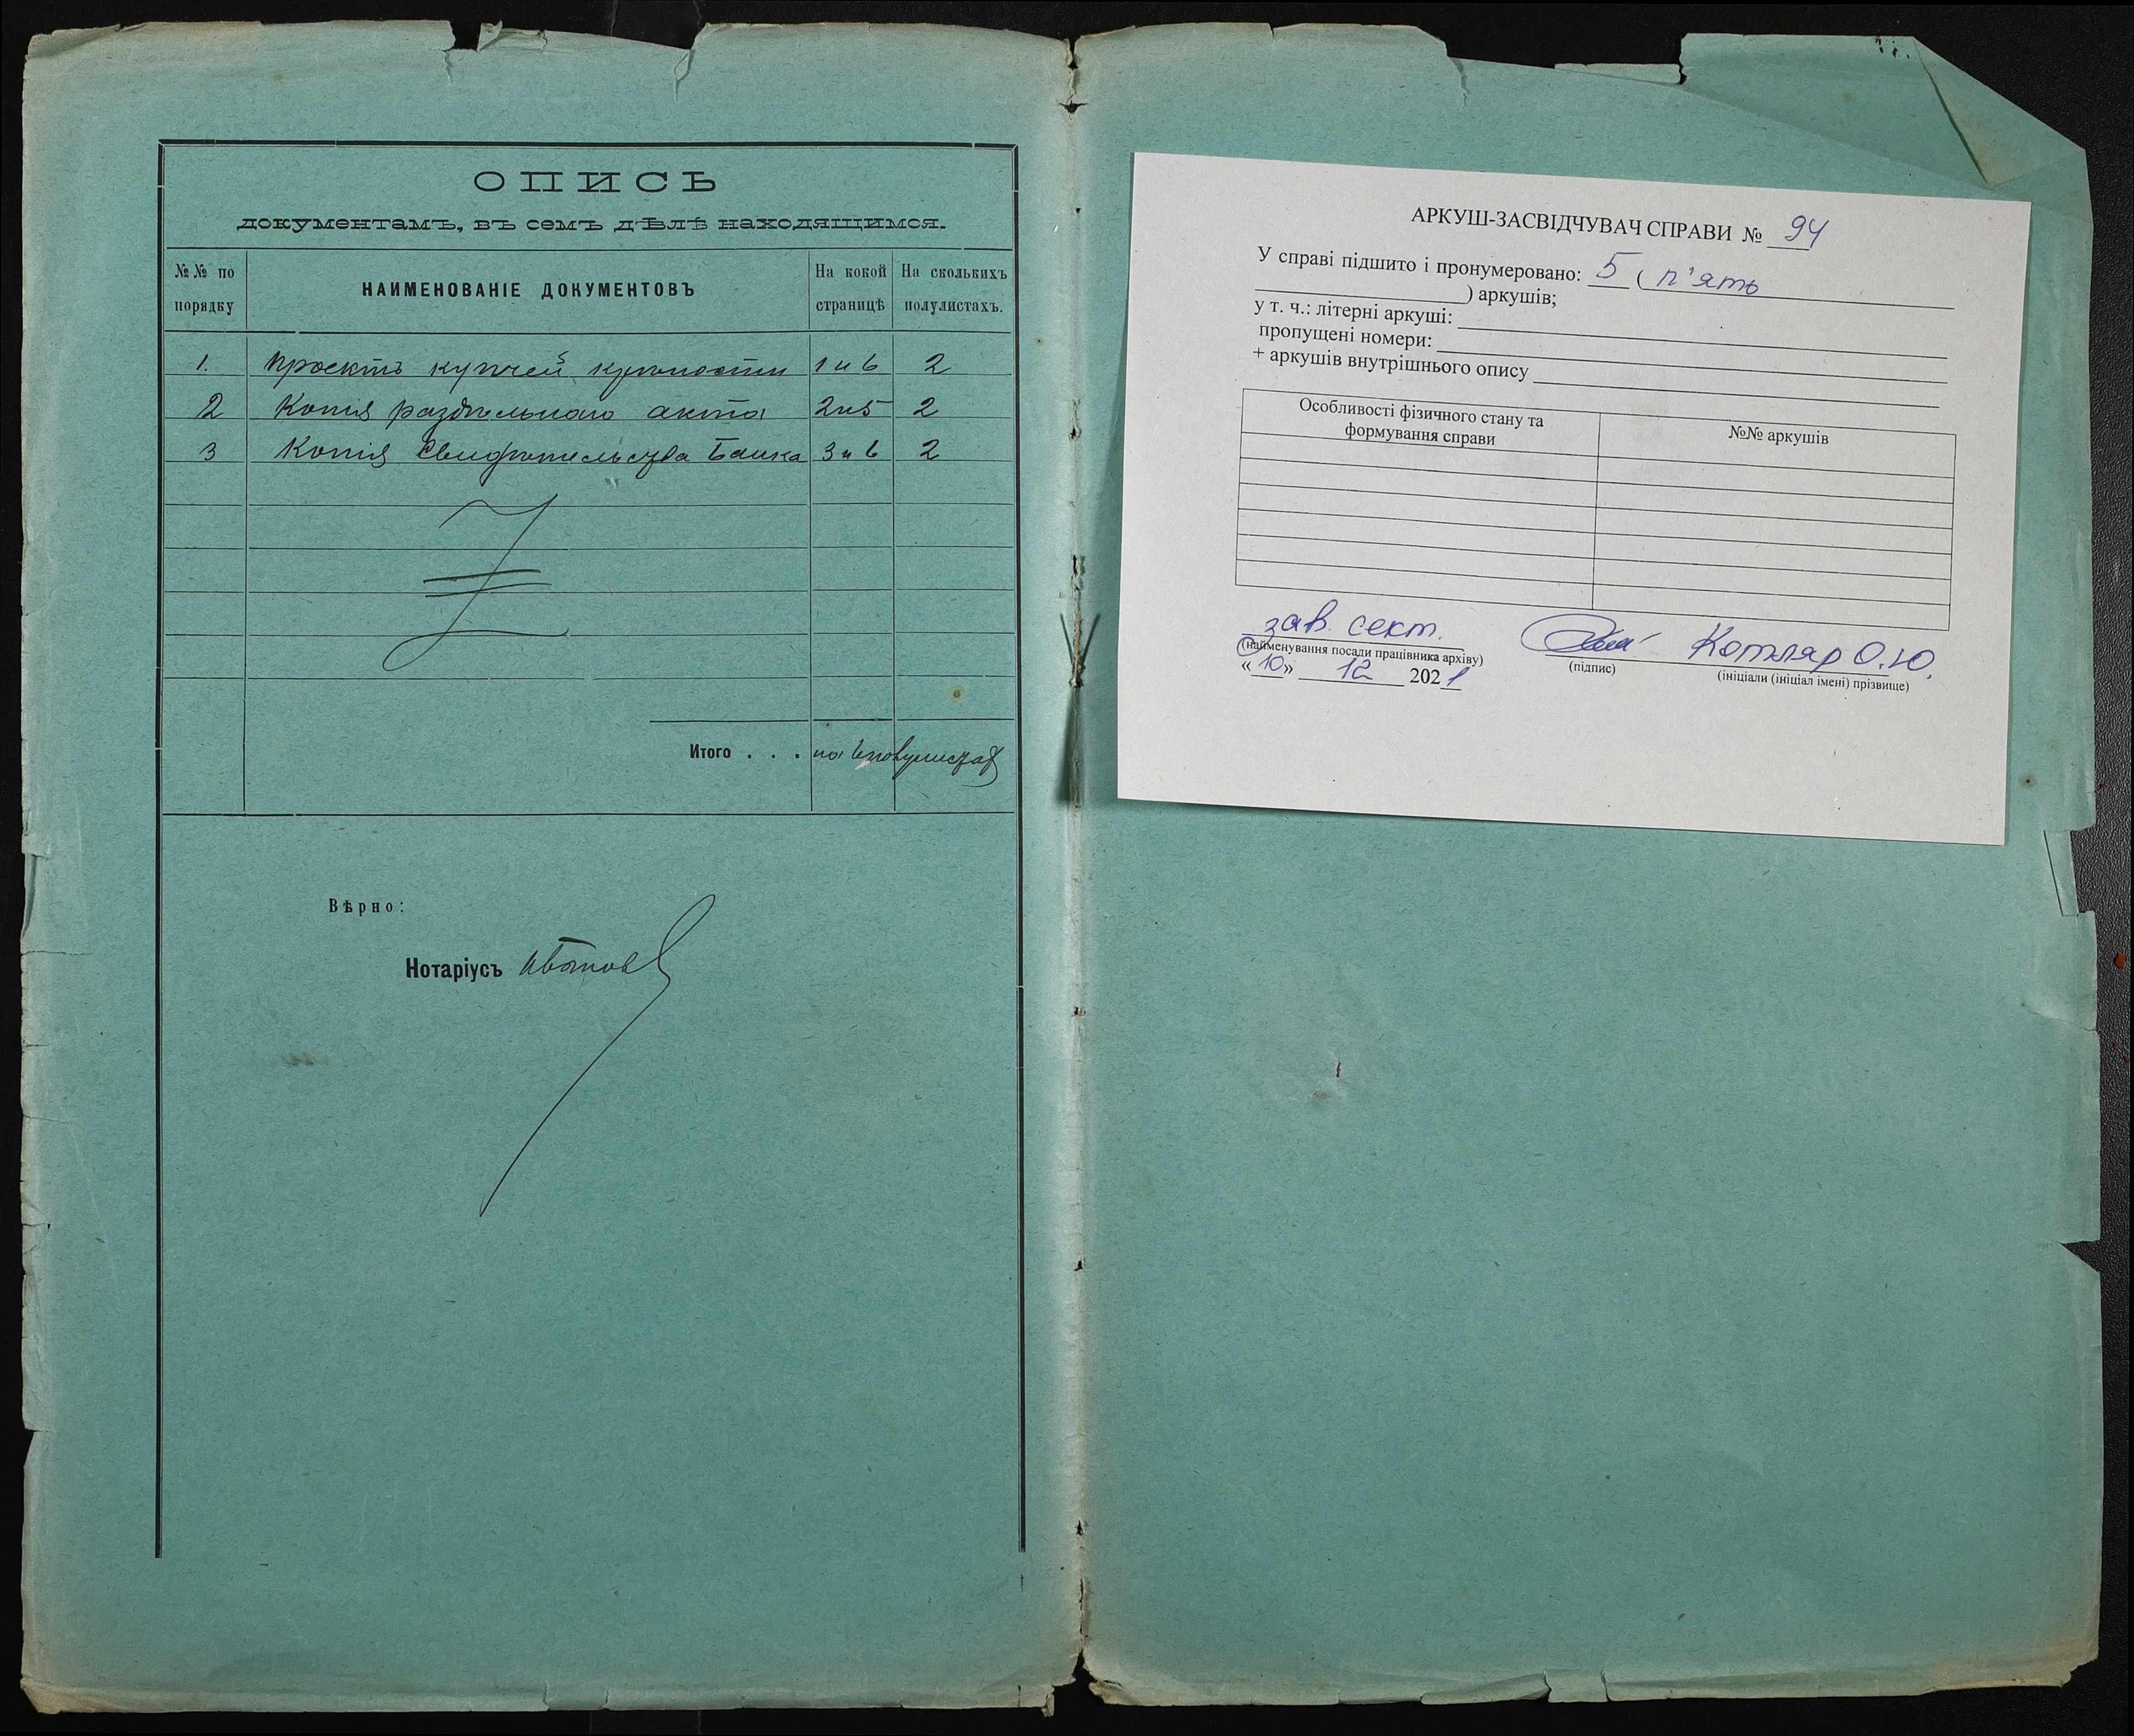 ОПИСЬ
документамъ, въ семъ дѣлѣ находящимся.
№№ по порядку
НАИМЕНОВАНІЕ ДОКУМЕНТОВЪ
На кокой страницѣ
На сколькихъ полулистахъ.
1. Проектъ купчей крѣпости 1 и 6 2
2 Копія раздѣльнаго акта 2 и 5 2
3 Копія Свидѣтельства Банка 3 и 6 2
Итого . . . на 6 полулистах
Вѣрно:
Нотаріусъ
АРКУШ-ЗАСВІДЧУВАЧ СПРАВИ № 94
У справі підшито і пронумеровано: 5 ( п'ять
) аркушів;
у т. ч.: літерні аркуші:
пропущені номери:
+ аркушів внутрішнього опису
Особливості фізичного стану та
формування справи
№№ аркушів
зав. сект. Котляр О.Ю.
(найменування посади працівника архіву) (підпис) (ініціали (ініціал імені) прізвище)
«10» 12 2021